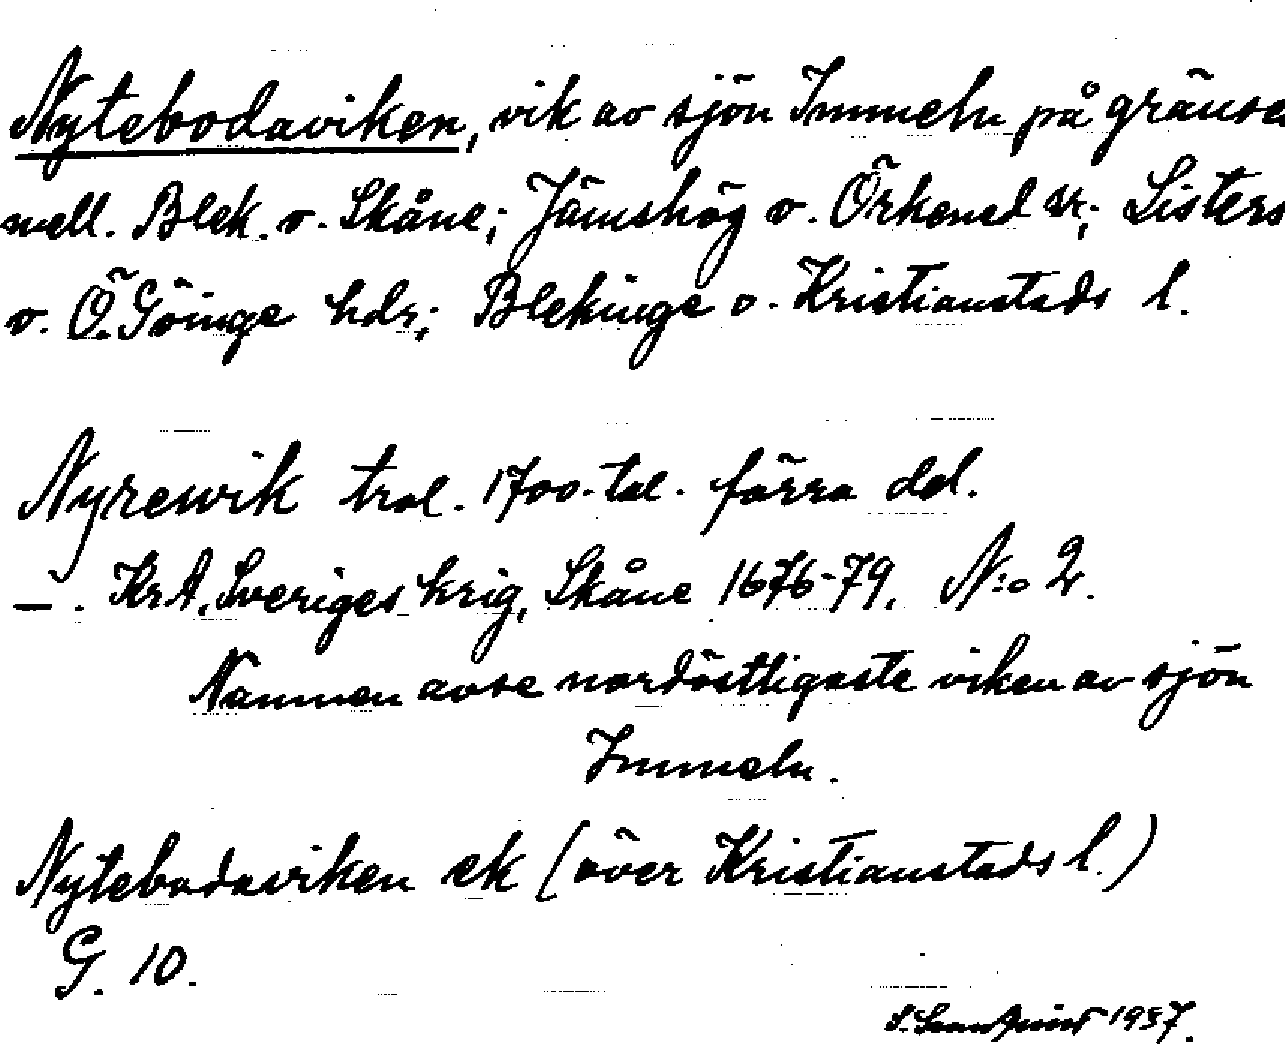 Nytebodaviken, vik av sjön Immeln på gränse
mell. Blek. o. Skåne; Jämshög o. Örkened sr; Listers
o. Ö. Göinge hdr; Blekinge o. Kristianstads l.
Nyrewik trol. 1700-tal. förra del.
—. KrA, Sveriges krig, Skåne 1676-79. N:o 2.
Namnen avse nordöstligaste viken av sjön
Immeln.
Nytebodaviken ek (över Kristianstads l.)
G. 10.
1937.